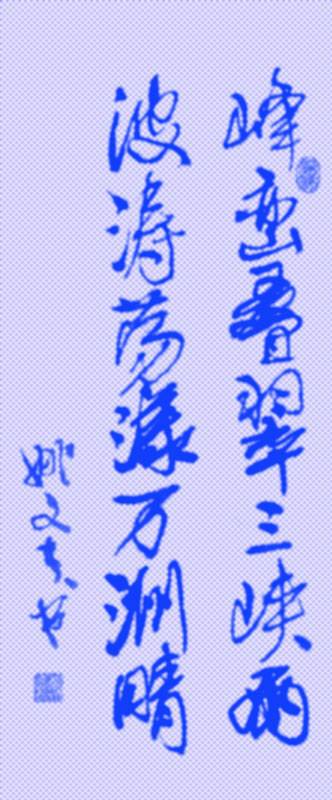 峰峦叠翠三峡雨
波涛荡漾万洲晴
姚文书